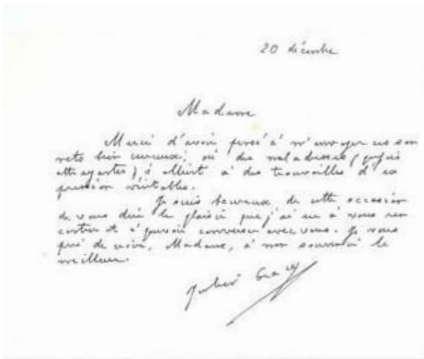 20 décembre
Madame
Merci d'avoir pensé à m'envoyer ces son
nets bien curieux, où des maladresses (parfois
attrayantes) s'allient à des trouvailles d'ex
pression véritables.
Je suis heureux de cette occasion
de vous dire le plaisir que j'ai eu à vous ren
contrer et à pouvoir converser avec vous. Je vous
prie de croire, Madame, à mon souvenir le
meilleur.
Julien Gracq